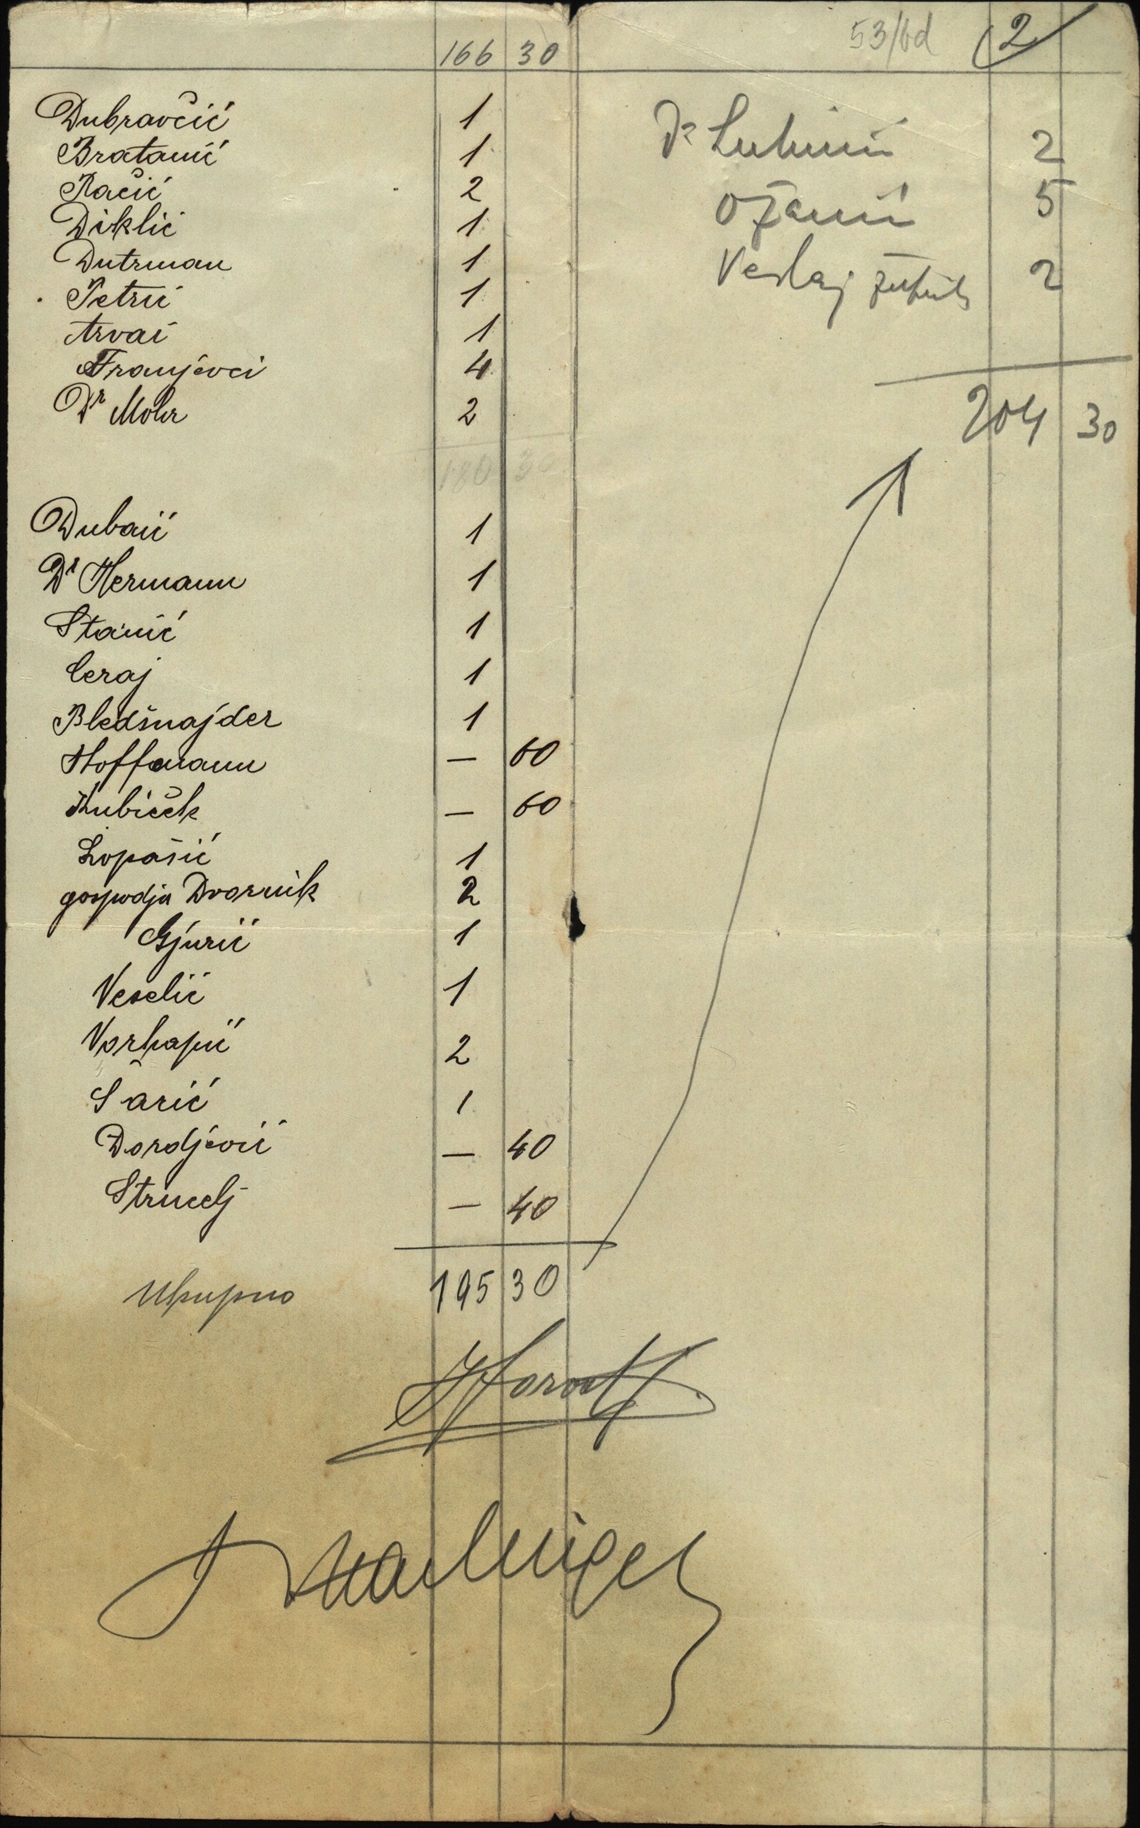 166 30
Dubravčić 1
Bratanić 1
Račić 2
Diklić 1
Dutrman 1
Petrić 1
Arvai 1
Franjevci 4
Dr Mohr 2
180 30
Dubaić 1
Dr Hermann 1
Stanić 1
Ceraj 1
Bledšnajder 1
Hoffmann — 60
Kubiček — 60
Lopašić 1
gospodja Dvornik 2
Gjurić 1
Veselić 1
Vorkapić 2
Šarić 1
Dordjević — 40
Strucelj — 40
Ukupno 195 30
53/bd 2
Dr 2
Ožanić 5
2
204 30